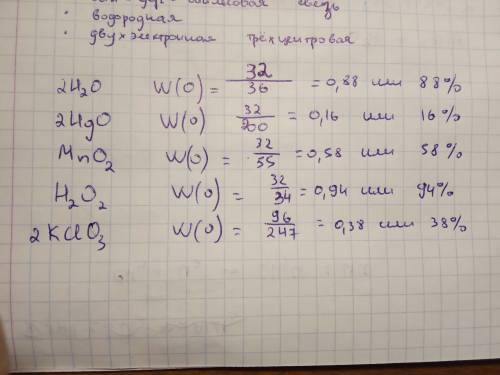 связь
водородная
двухэлектронная трёхцентровая
2H₂O W(O) = 32/36 = 0,88 или 88%
2HgO W(O) 32/200 = 0,16 или 16%
MnO₂ W(O) = 32/55 = 0,58 или 58%
H₂O₂ W(O) = 32/34 = 0,94 или 94%
2KClO₃ W(O) = 96/247 = 0,38 или 38%